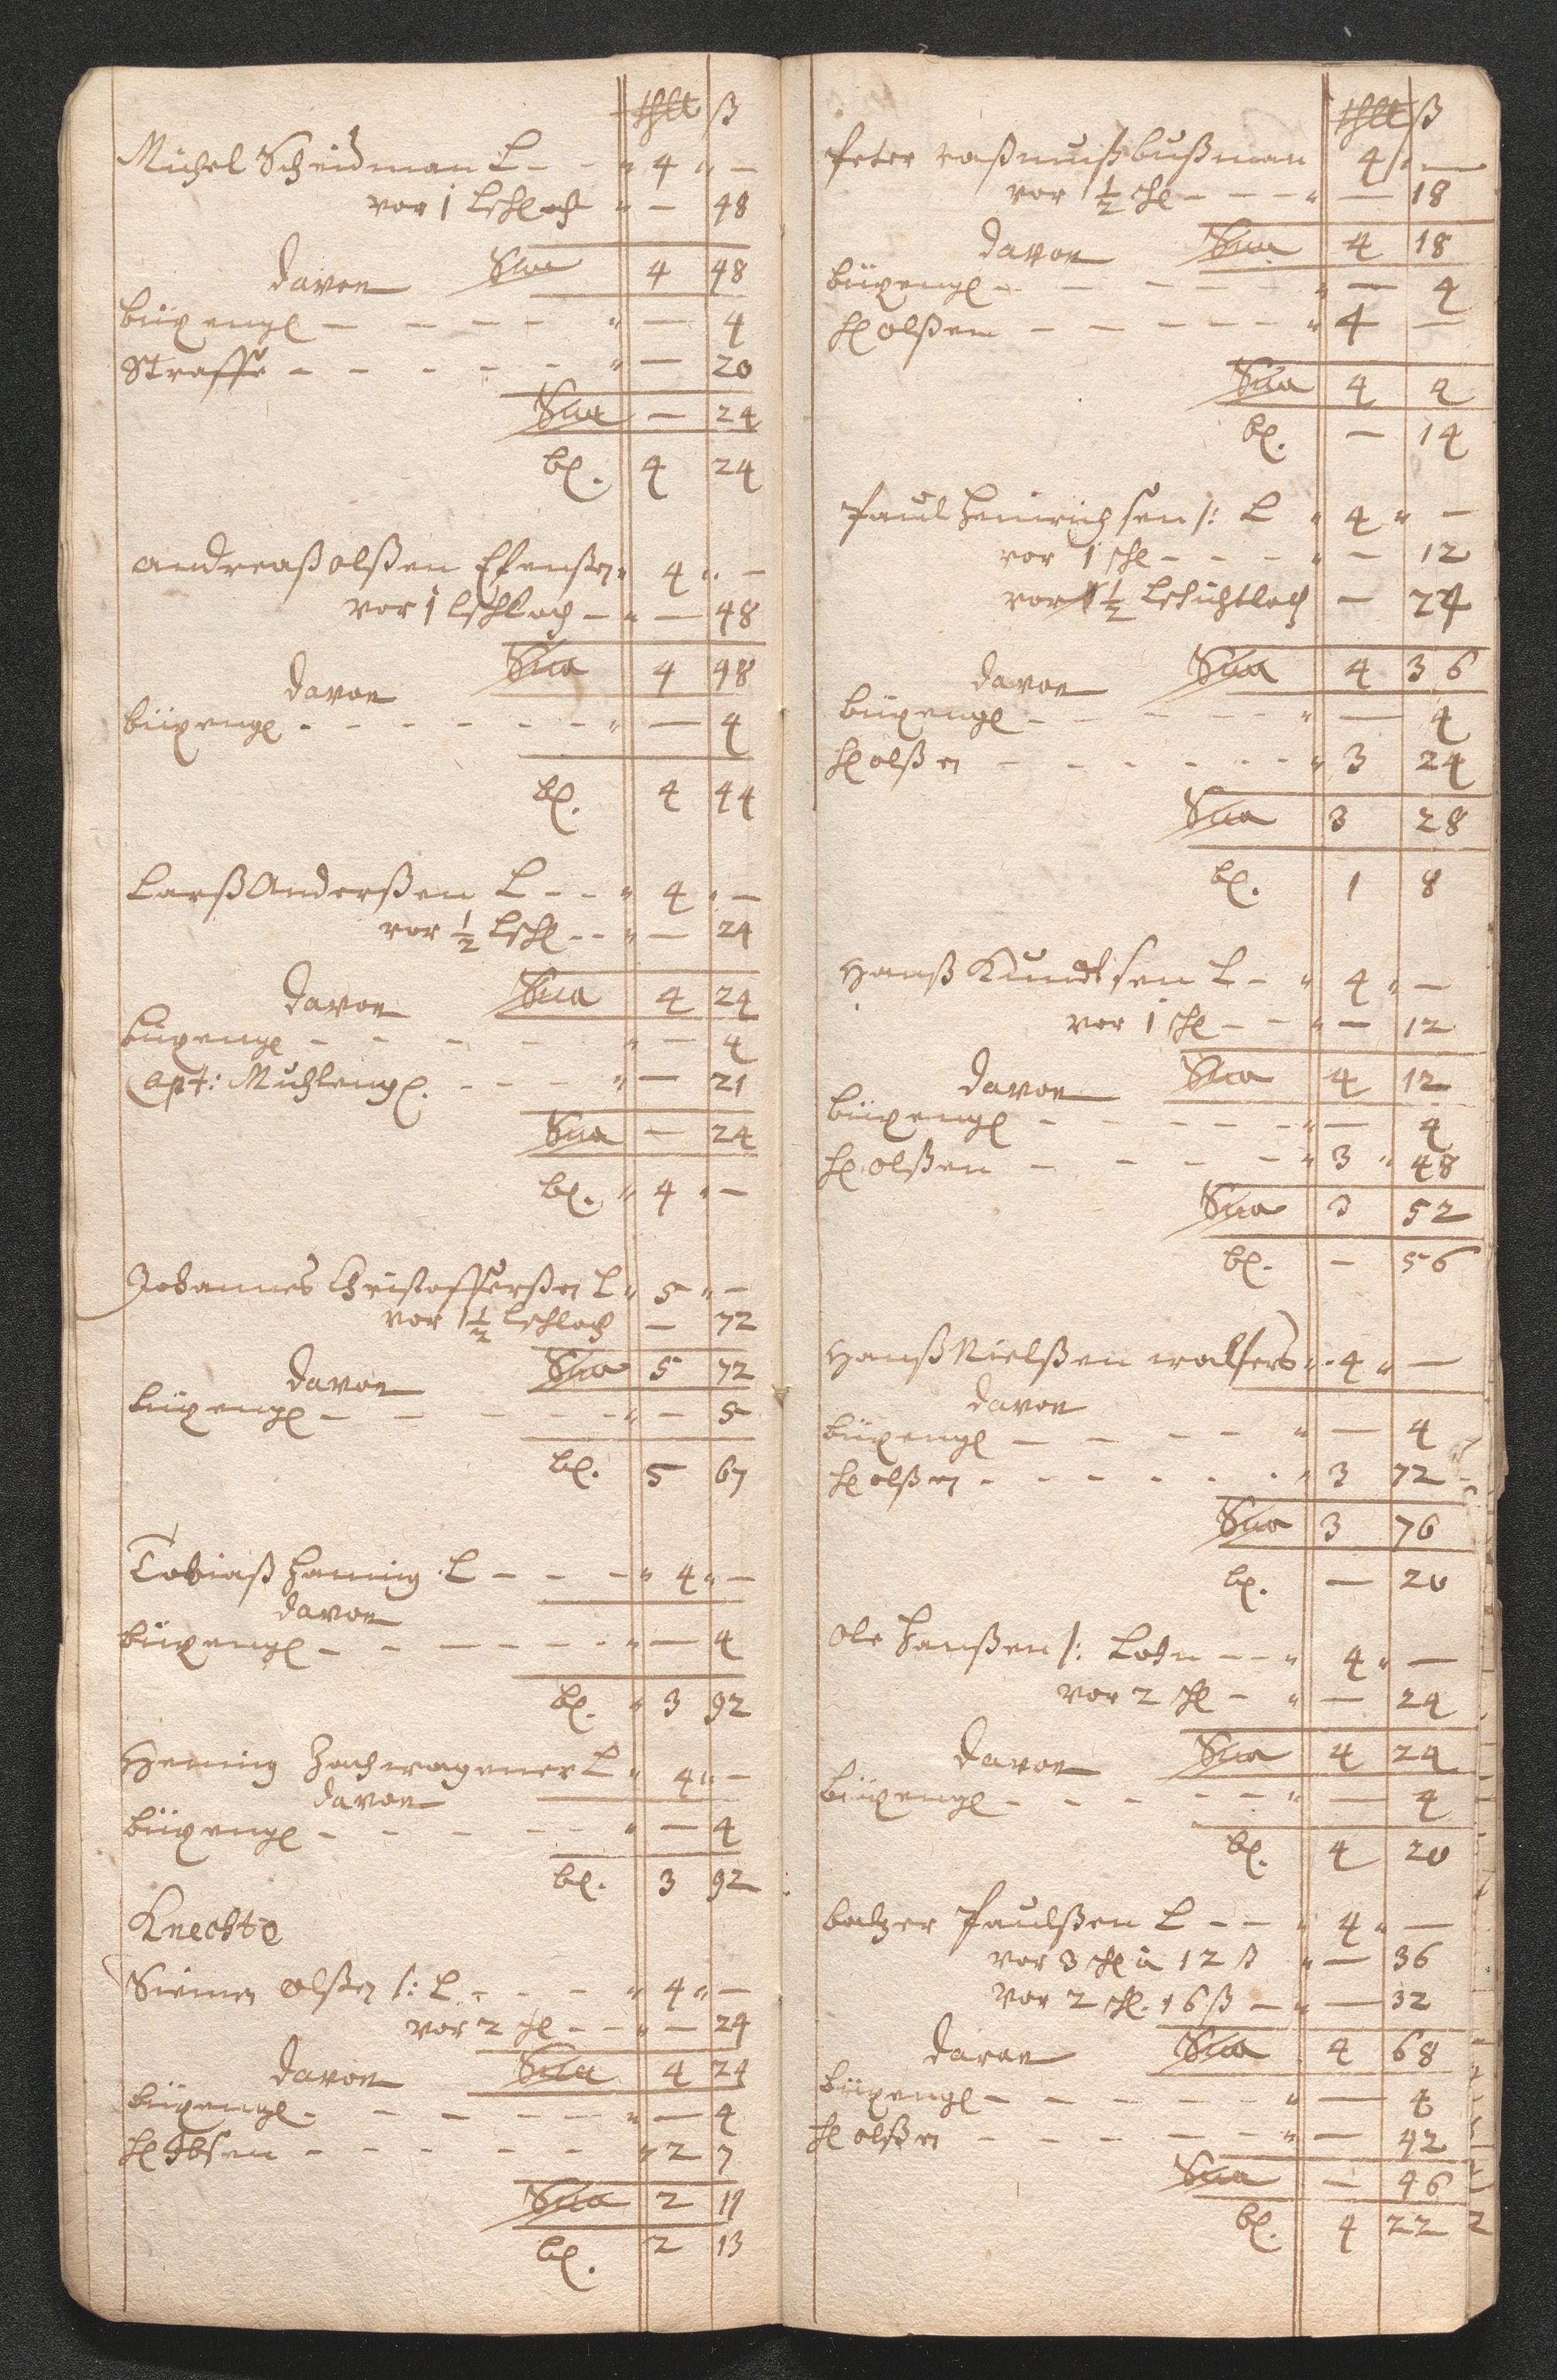 thlr ß
Michel Scheidman L - - " 4 " -
vor 1 Lschlach " - 48
davon Sua 4 48
büxengl - - - - " - 4
Straffe - - - - - " - 20
Sua - 24
bl. 4 24
andreaß olßen " 4 " -
vor 1 Lschlach - " - 48
davon Sua 4 48
büxengl - - - - - - " - 4
bl. 4 44
Larß Anderßen L - - " 4 " -
vor ½ Lschl - - " - 24
davon Sua 4 24
büxengl - - - - - " - 4
Capt: Muhlengl. - - - - " - 21
Sua - 24
bl. " 4 " -
Johannes Christofferßen L " 5 " -
vor 1½ Lschlach - 72
davon Sua 5 72
büxengl - - - - - - " - 5
bl. 5 67
Tobiaß Haning L - - - " 4 " -
davon
büxengl - - - - - - " - 4
bl. " 3 92
Hening Zachwagener L " 4 " -
davon
büxengl - - - - - - " - 4
bl. 3 92
Knechte
Simen olßen /: L - - - " 4 " -
vor 2 schl - - " - 24
davon Sua 4 24
büxengl - - - - - - " - 4
H Ibsen - - - - - - " 2 7
Sua 2 11
bl. 2 13
thlr ß
Peter raßmuß bußman 4 " -
vor 1½ schl - - - - " - 18
davon Sua 4 18
büxengl - - - - - - " - 4
H olßen - - - - - - " 4 -
Sua 4 4
bl. - 14
Paul Heinrichsen /: L " 4 " -
vor 1 schl - - - - " - 12
vor ½ Lschichtlach - 24
davon Sua 4 36
büxengl - - - - - " - 4
H olßen - - - - - - " 3 24
Sua 3 28
bl. 1 8
Hanß Knudtsen L - " 4 " -
vor 1 schl - - " - 12
davon Sua 4 12
büxengl - - - - - " - 4
H. olßen - - - - " 3 " 48
Sua 3 52
bl. - 56
Hanß Nielßen " 4 " -
davon
büxengl - - - - - " - 4
H olßen - - - - - - " 3 72
Sua 3 76
bl. - 20
Ole Hanßen /: Lohn - - " 4 " -
vor 2 schl - " - 24
davon Sua 4 24
büxengl - - - - - - " - 4
bl. 4 20
balzer Paulßen L - - " 4 " -
vor 3 schl à 12 ß " - 36
vor 2 schl. 16 ß - " - 32
davon Sua 4 68
büxengl - - - - - - " - 4
H olßen - - - - - - " - 42
Sua - 46
bl. 4 22